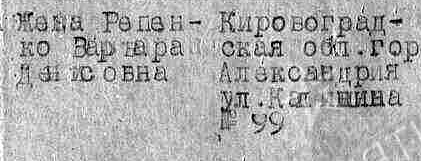 Жена Репен-
ко Варвара
Денисовна
Кировоград-
ская обл.гор
Александрия
ул.Калинина
№ 99